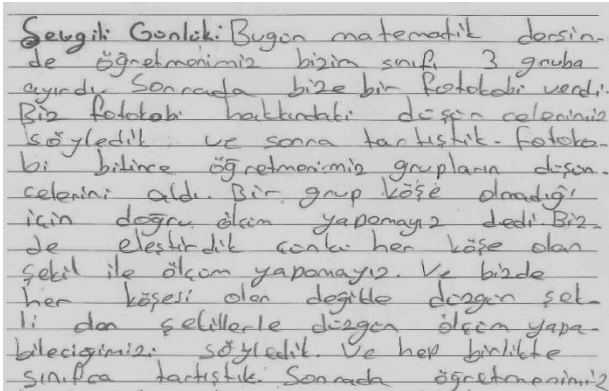 Sevgili Günlük: Bugün matematik dersin-
de öğretmenimiz bizim sınıfı 3 gruba
ayırdı. Sonrada bize bir fotokobi verdi.
Biz fotokobi hakkındaki düşün celerimizi
söyledik ve sonra tartıştık. Fotoko-
bi bitince öğretmenimiz grupların düşün-
celerini aldı. Bir grup köşe olmadığı
için doğru ölçüm yapamayız dedi. Biz-
de eleştirdik çünkü her köşe olan
şekil ile ölçüm yapamayız. Ve bizde
her köşesi olan değilde düzgün şek-
li olan şekillerle düzgün ölçüm yapa-
bileciğimizi söyledik. Ve hep birlikte
sınıfca tartıştık. Sonrada öğretmenimiz